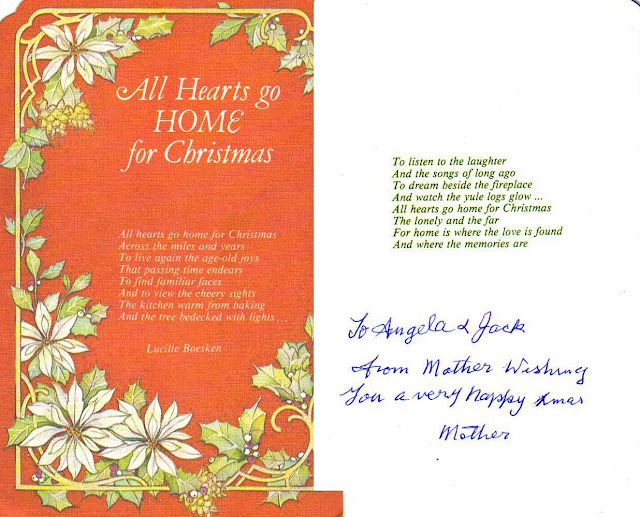 All Hearts go
HOME
for Christmas
All hearts go home for Christmas
Across the miles and years
To live again the age-old joys
That passing time endears
To find familiar faces
And to view the cheery sights
The kitchen warm from baking
And the tree bedecked with lights ...
Lucille Boesken
To listen to the laughter
And the songs of long ago
To dream beside the fireplace
And watch the yule logs glow ...
All hearts go home for Christmas
The lonely and the far
For home is where the love is found
And where the memories are
To Angela & Jack
from Mother Wishing
You a very happy xmas
Mother